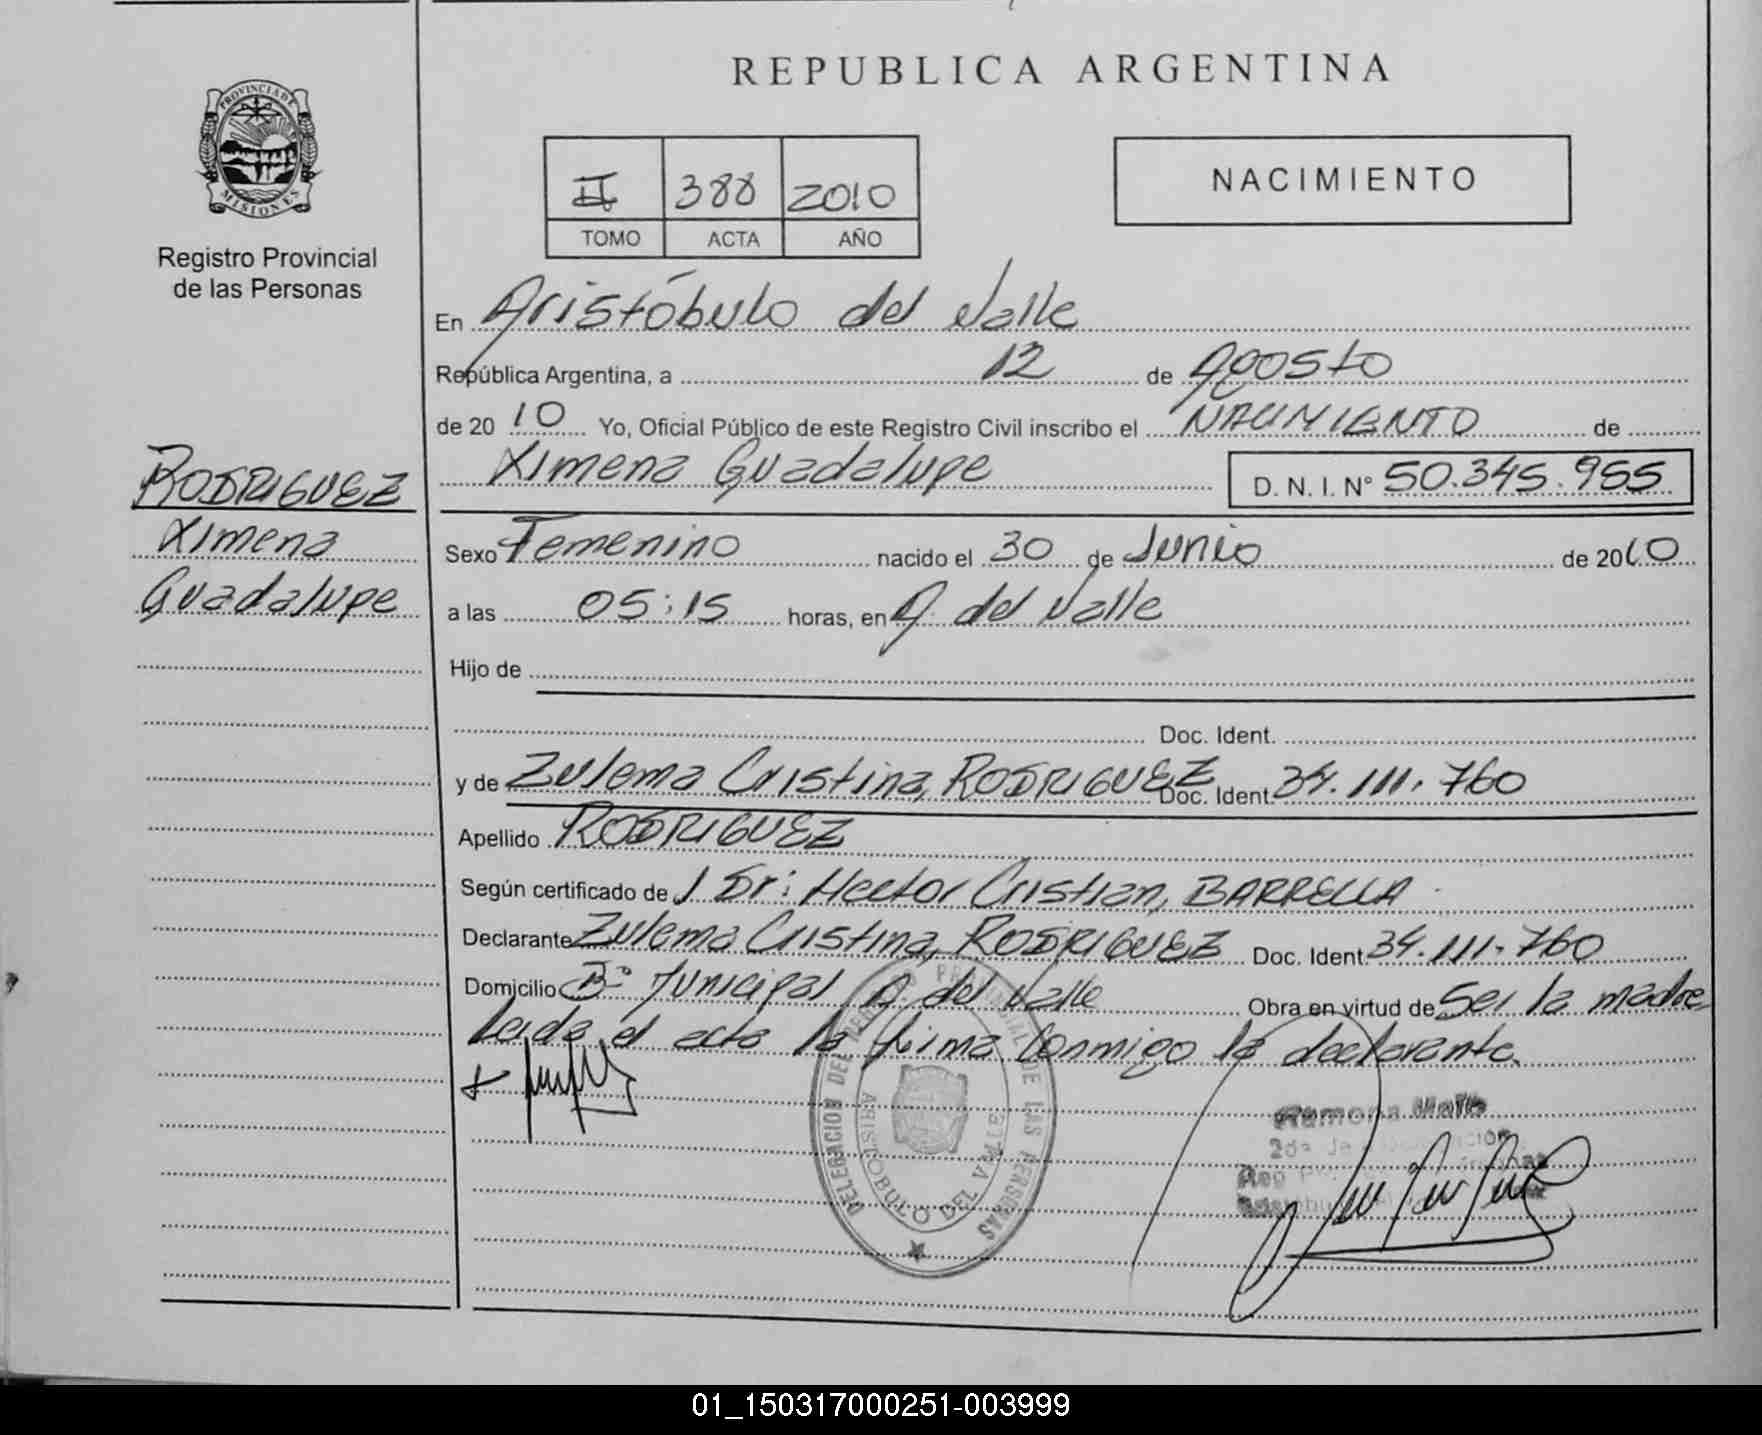 REPUBLICA ARGENTINA
PROVINCIA DE
MISIONES
Registro Provincial
de las Personas
II 388 2010
TOMO ACTA AÑO
NACIMIENTO
En Aristóbulo del Valle
República Argentina, a 12 de Agosto
de 20 10 Yo, Oficial Público de este Registro Civil inscribo el NACIMIENTO de
Ximena Guadalupe D. N. I. N° 50.345.955
RODRIGUEZ
Ximena
Guadalupe
Sexo Femenino nacido el 30 de Junio de 20 10
a las 05:15 horas, en A. del Valle
Hijo de
Doc. Ident.
y de Zulema Cristina, RODRIGUEZ Doc. Ident. 34.111.760
Apellido RODRIGUEZ
Según certificado de / Dr: Hector Cristian, BARRELLA
Declarante Zulema Cristina, RODRIGUEZ Doc. Ident. 34.111.760
Domicilio B° Municipal A. del Valle Obra en virtud de Ser la madre
Leida el acta la firma Conmigo la declarante.
DELEGACION DEL REGISTRO PROVINCIAL DE LAS PERSONAS
ARISTOBULO DEL VALLE
Ramona
01_150317000251-003999